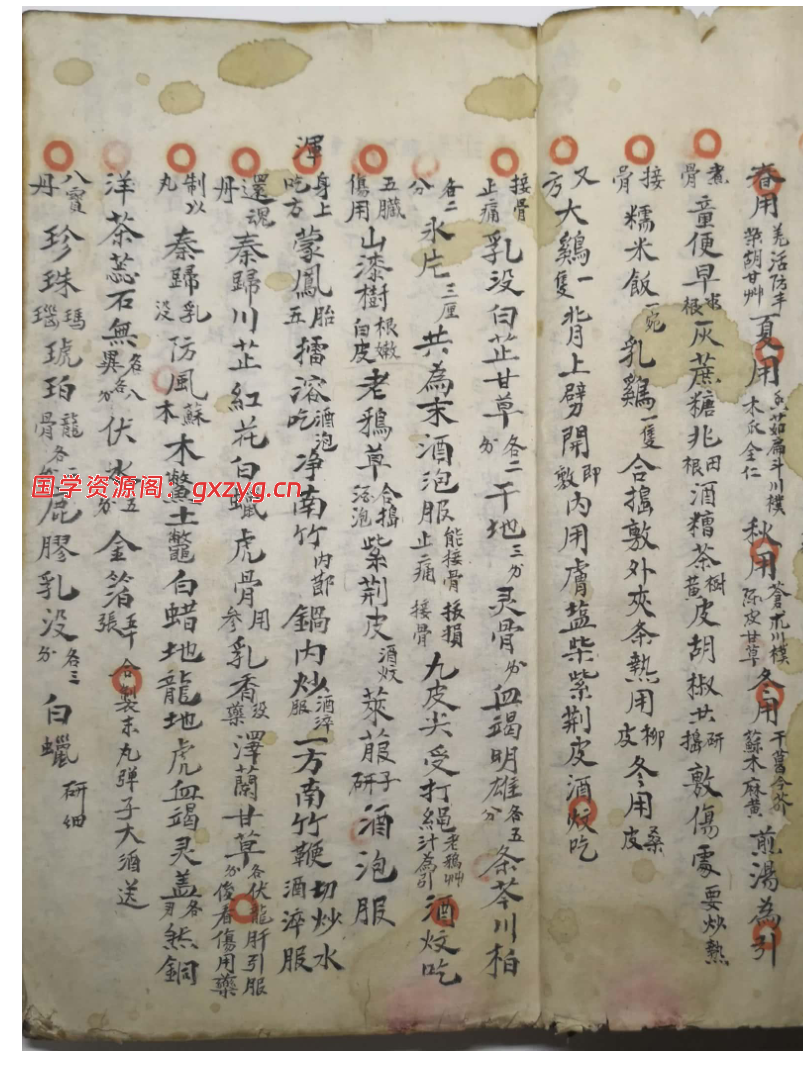 春用羌活防丰柴胡甘艸夏用香茹扁斗川樸木瓜全仁秋用蒼朮川樸陈皮甘草冬用干葛今芥蘇木麻黄煎湯為引
煮骨童便早根灰蔗糖兆田根酒糟茶樹黄皮胡椒共研搗敷傷處要炒熱
接骨糯米飯一碗乳鷄一隻合搗敷外夾条熱用柳皮冬用桑皮
又方大鷄一隻背上劈開即敷内用膚塩柴紫荆皮酒炆吃
接骨止痛乳没白芷甘草各二分干地三分灵骨分血竭明雄各五分条芩川柏
各二分氷片三厘共為末酒泡服能接骨振損止痛接骨九皮尖受打繩老鴉艸汁為引酒炆吃
五臓傷用山漆樹根嫩白皮老鴉草合搗酒泡紫荆皮酒炆萊菔子研酒泡服
渾身上吃方蒙鳳胎五擂溶酒泡吃净南竹内節鍋内炒酒淬服一方南竹鞭切炒水酒淬服
還魂丹秦歸川芷紅花白蠟虎骨用参乳香没藥澤蘭甘草各分伏龍肝引服後看傷用藥
制以丸秦歸乳没防風蘇木木鱉土鼈白蜡地龍地虎血竭灵盖各刄煞銅
洋茶蕊石無異各八分伏水五分金箔五十張合製末丸彈子大酒送
八寶丹珍珠瑪瑙琥珀龍骨各二分鹿膠乳没各三分白蠟研细
国学资源阁：gxzyg.cn